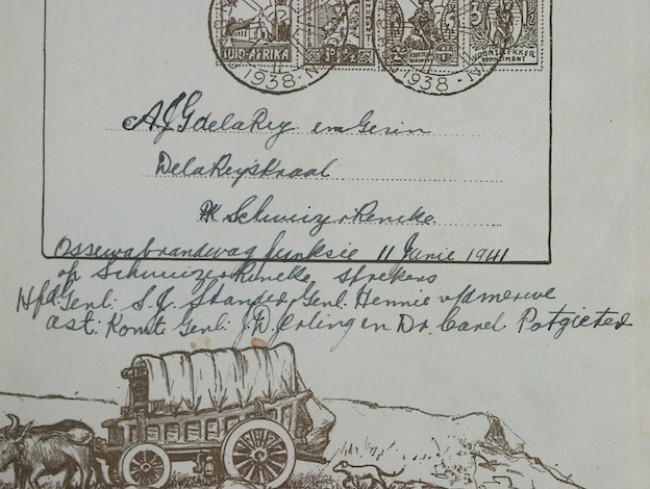 SUID-AFRIKA
VOORTREKKER
1938
1938
A.J.G de la Rey en Gesin
De la Reyskraal
PK Schweizer Reneke
Ossewabrandwag funksie 11 Junie 1941
op Schweizer Reneke sprekers
Hfd Genl: S.J. Stander, Genl: Hennie v/d merwe
ast: Komdt Genl: J.D. Jerling en Dr. Carel Potgieter